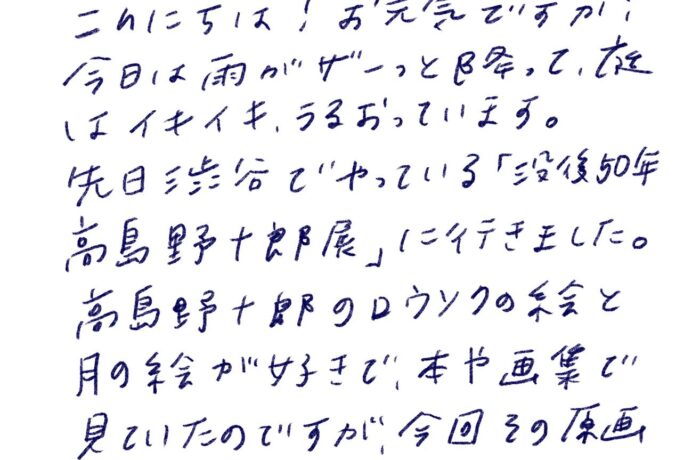 こんにちは！お元気ですか！
今日は雨がザーっと降って、庭
はイキイキ、うるおっています。
先日渋谷でやっている「没後50年
高島野十郎展」に行きました。
高島野十郎のロウソクの絵と
月の絵が好きで、本や画集で
見ていたのですが、今回その原画